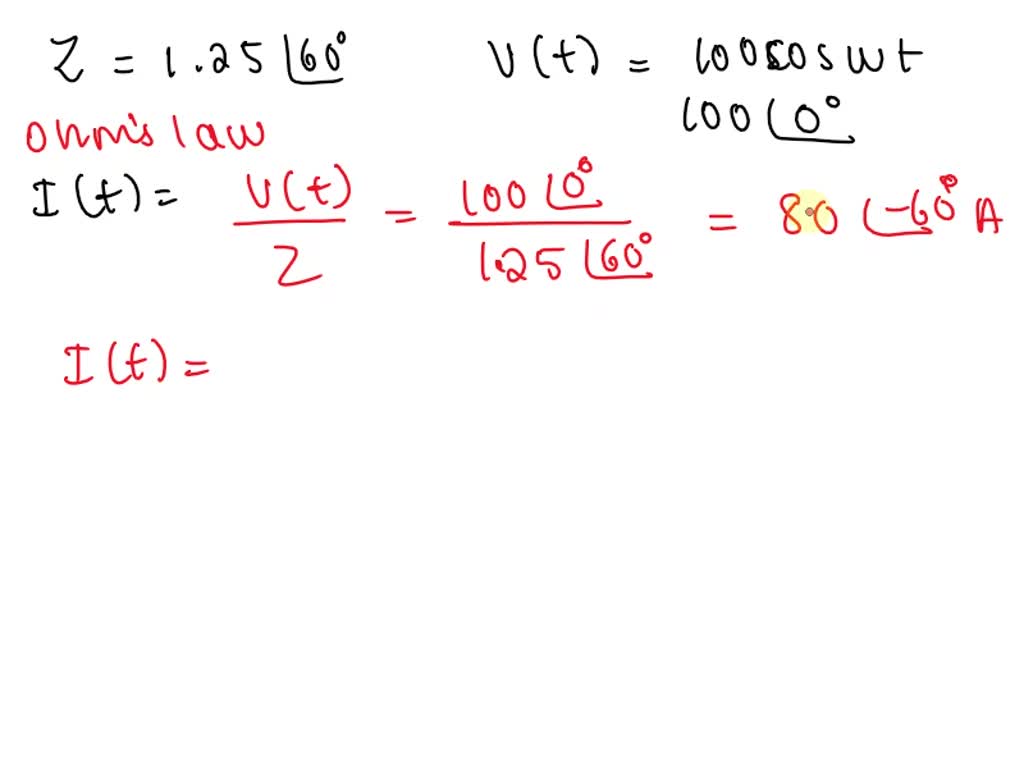 Z = 1.25 ∠60° V(t) = 100 cos wt
100 ∠0°
ohm's law
I(t) = V(t)/Z = 100 ∠0° / 1.25 ∠60° = 80 ∠-60° A
I(t) =